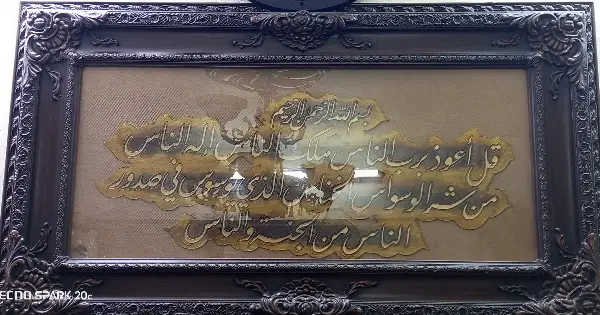 بسم الله الرحمن الرحيم
قل أعوذ برب الناس ملك الناس إله الناس
من شر الوسواس الخناس الذي يوسوس في صدور
الناس من الجنة والناس
TECNO SPARK 20C